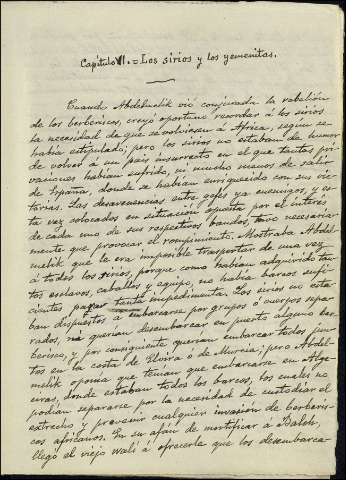 Capítulo VI.= Los sirios y los yemenitas.
Cuando Abdelmelik vió conjurada la rebelión
de los berberiscos, creyó oportuno recordar á los sirios
la necesidad de que se volviesen á Africa, según se
había estipulado; pero los sirios no estaban de humor
de volver á un país insurrecto en el que tantas pri-
vaciones habían sufrido, ni mucho menos de salir
de España, donde se habían enriquecido con sus vic-
torias. Las desavenencias entre gefes ya enemigos, y es-
ta vez colocados en situación opuesta por el interés
de cada uno de sus respectivos bandos, tuvo necesaria-
mente que provocar el rompimiento. Mostraba Abdel-
melik que le era imposible transportar de una vez
á todos los sirios, porque como habían adquirido tan-
tos esclavos, caballos y equipo, no había barcos sufi-
cientes para tanta impedimenta. Los sirios no esta-
ban dispuestos á embarcarse por grupos ó cuerpos sepa-
rados, ni querían desembarcar en puerto alguno ber-
berisco, y por consiguiente querían embarcar todos jun-
tos en la costa de Elvira ó de Murcia; pero Abdel-
melik oponía que tenían que embarcarse en Alge-
ciras, donde estaban todos los barcos, los cuales no
podían separarse por la necesidad de custodiar el
estrecho y prevenir cualquier invasión de berberis-
cos africanos. En su afán de mortificar á Balch,
llegó el viejo walí á ofrecerle que los desembarca-